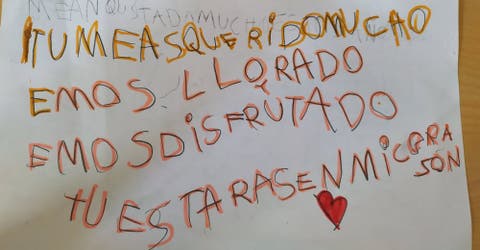 MEANQUSTADAMUCH
ITUMEASQUERIDOMUCAO
EMOS LLORADO
EMOSDiSFRUTADO
tUESTARASENMiCORA
SÓN